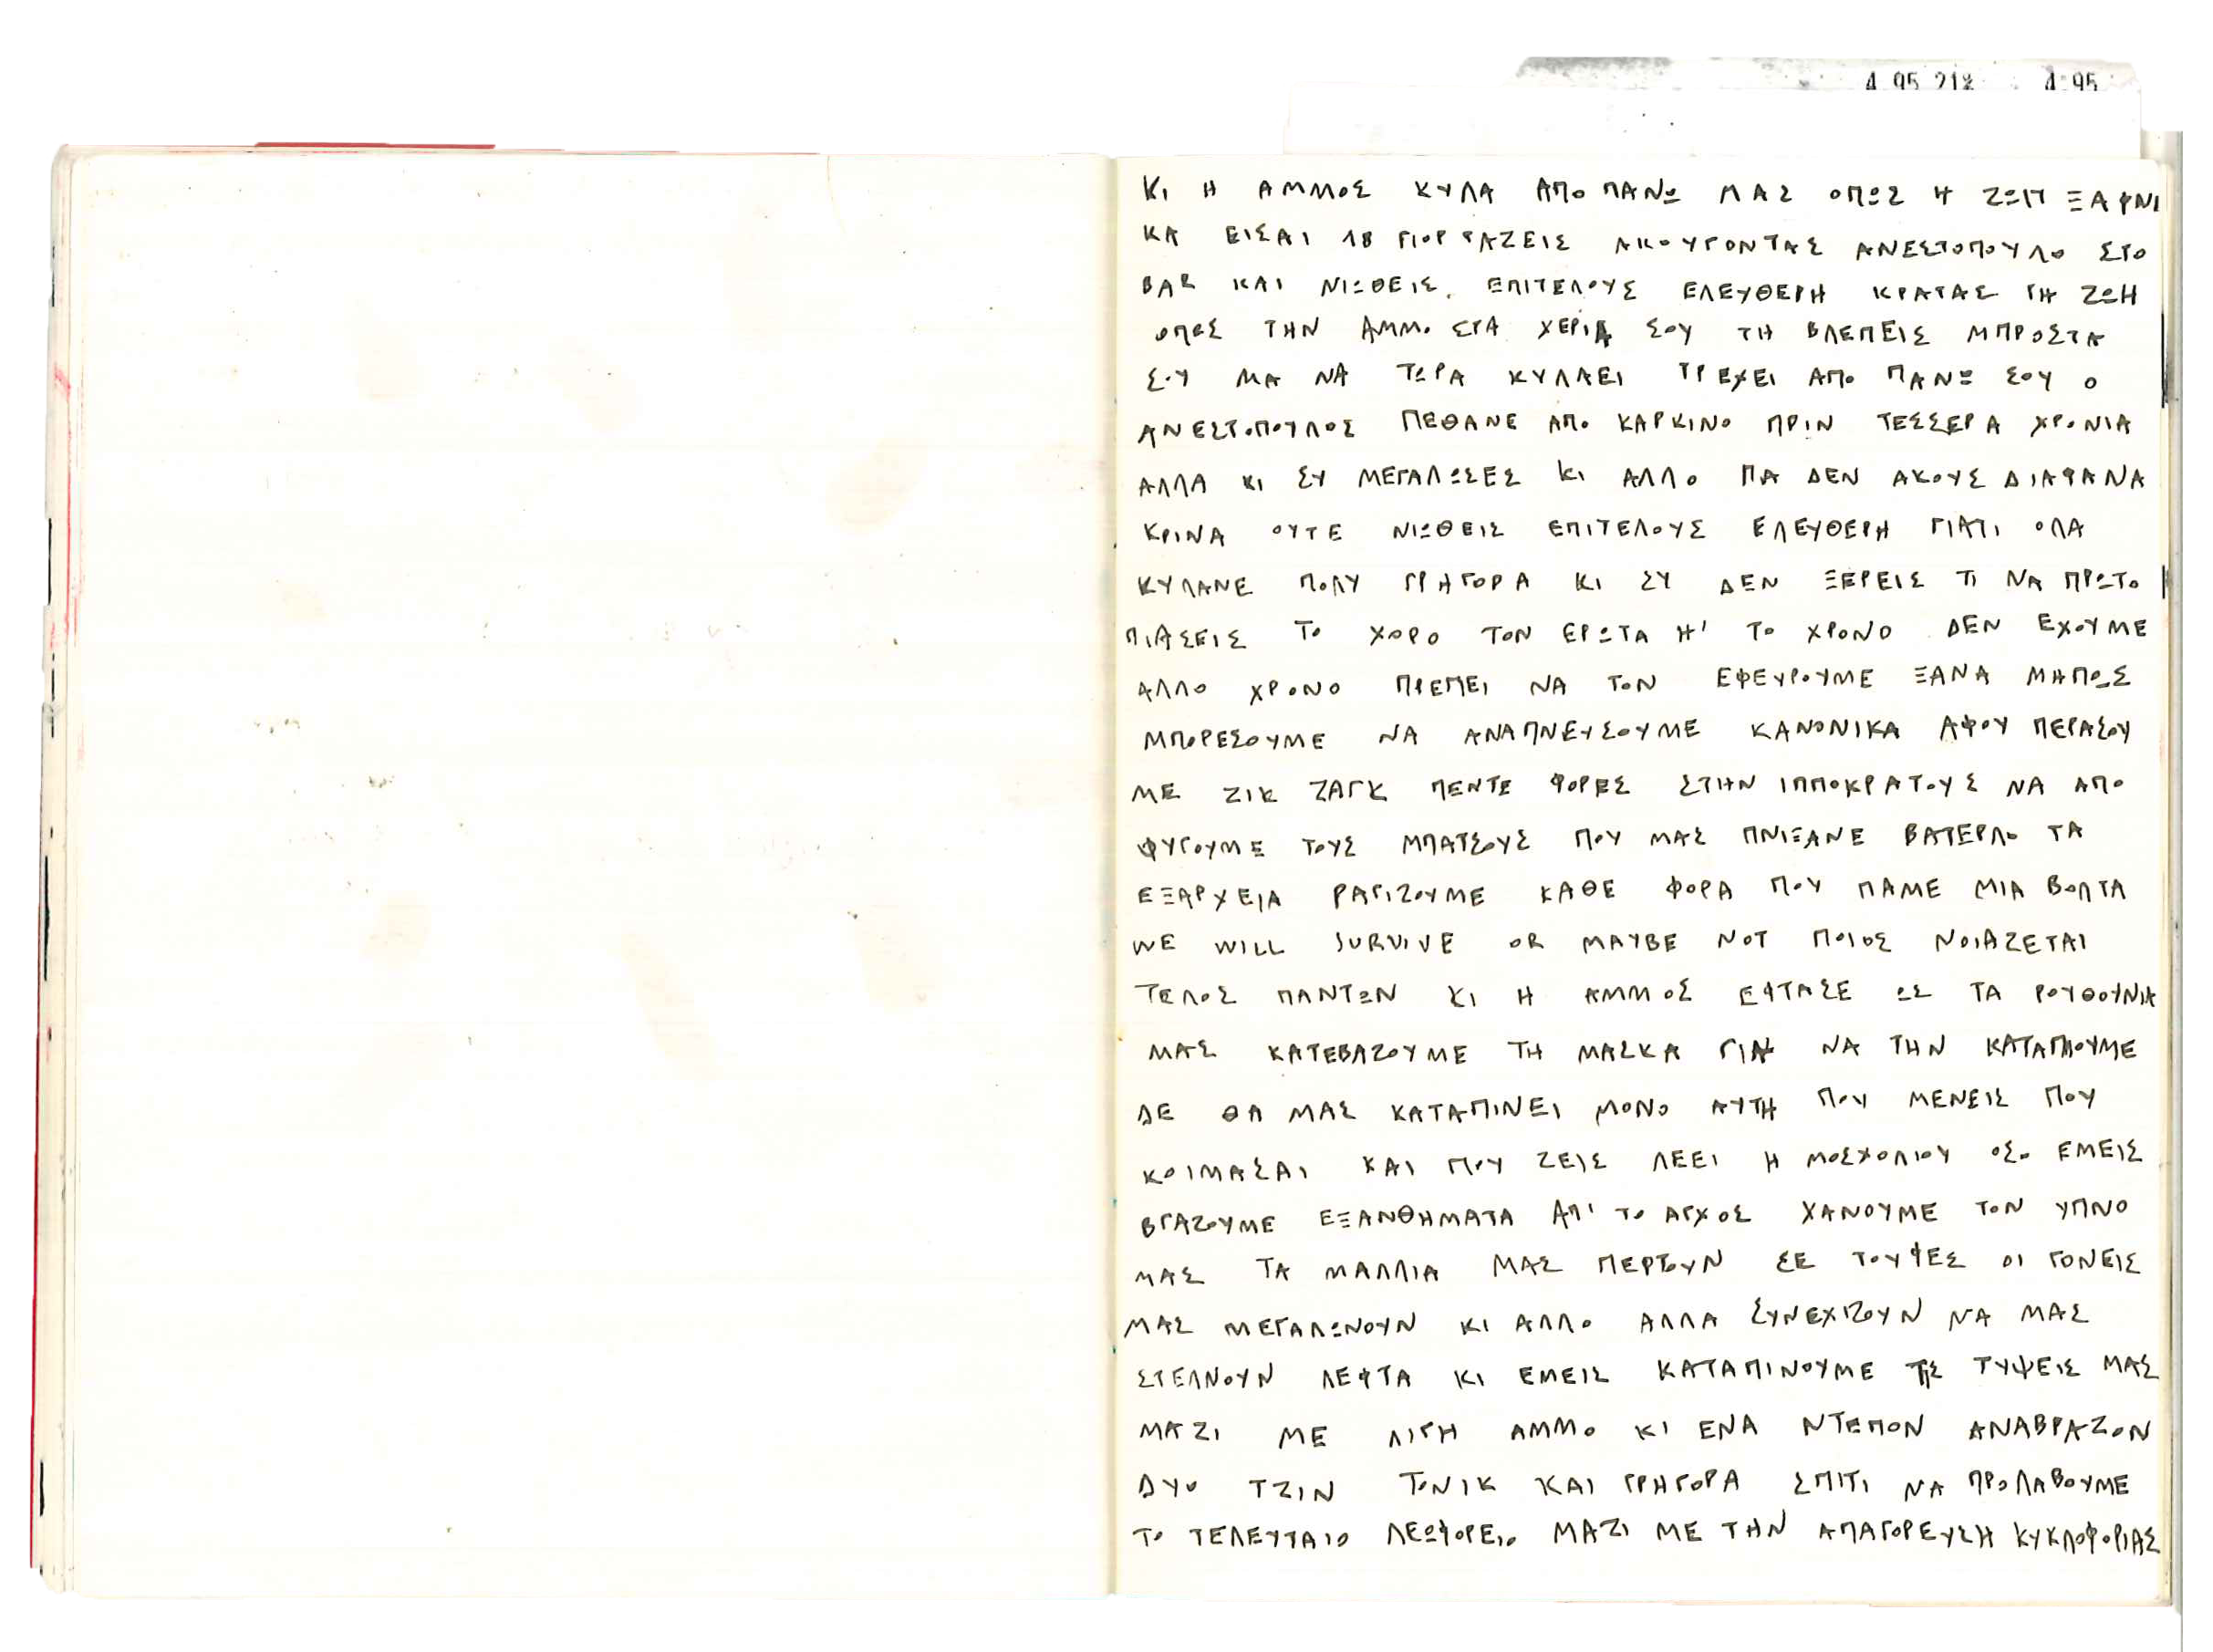 4 95 21% 4.95
ΚΙ Η ΑΜΜΟΣ ΚΥΛΑ ΑΠΟ ΠΑΝΩ ΜΑΣ ΟΠΩΣ Η ΖΩΗ ΞΑΦΝΙ
ΚΑ ΕΙΣΑΙ 18 ΓΙΟΡΤΑΖΕΙΣ ΑΚΟΥΓΟΝΤΑΣ ΑΝΕΣΤΟΠΟΥΛΟ ΣΤΟ
BAR ΚΑΙ ΝΙΩΘΕΙΣ. ΕΠΙΤΕΛΟΥΣ ΕΛΕΥΘΕΡΗ ΚΡΑΤΑΣ ΤΗ ΖΩΗ
ΟΠΩΣ ΤΗΝ ΑΜΜΟ ΣΤΑ ΧΕΡΙΑ ΣΟΥ ΤΗ ΒΛΕΠΕΙΣ ΜΠΡΟΣΤΑ
ΣΟΥ ΜΑ ΝΑ ΤΩΡΑ ΚΥΛΑΕΙ ΤΡΕΧΕΙ ΑΠΟ ΠΑΝΩ ΣΟΥ Ο
ΑΝΕΣΤΟΠΟΥΛΟΣ ΠΕΘΑΝΕ ΑΠΟ ΚΑΡΚΙΝΟ ΠΡΙΝ ΤΕΣΣΕΡΑ ΧΡΟΝΙΑ
ΑΛΛΑ ΚΙ ΣΥ ΜΕΓΑΛΩΣΕΣ ΚΙ ΑΛΛΟ ΠΑ ΔΕΝ ΑΚΟΥΣ ΔΙΑΦΑΝΑ
ΚΡΙΝΑ ΟΥΤΕ ΝΙΩΘΕΙΣ ΕΠΙΤΕΛΟΥΣ ΕΛΕΥΘΕΡΗ ΓΙΑΤΙ ΟΛΑ
ΚΥΛΑΝΕ ΠΟΛΥ ΓΡΗΓΟΡΑ ΚΙ ΣΥ ΔΕΝ ΞΕΡΕΙΣ ΤΙ ΝΑ ΠΡΩΤΟ
ΠΙΑΣΕΙΣ ΤΟ ΧΩΡΟ ΤΟΝ ΕΡΩΤΑ Η' ΤΟ ΧΡΟΝΟ ΔΕΝ ΕΧΟΥΜΕ
ΑΛΛΟ ΧΡΟΝΟ ΠΡΕΠΕΙ ΝΑ ΤΟΝ ΕΦΕΥΡΟΥΜΕ ΞΑΝΑ ΜΗΠΩΣ
ΜΠΟΡΕΣΟΥΜΕ ΝΑ ΑΝΑΠΝΕΥΣΟΥΜΕ ΚΑΝΟΝΙΚΑ ΑΦΟΥ ΠΕΡΑΣΟΥ
ΜΕ ΖΙΚ ΖΑΓΚ ΠΕΝΤΕ ΦΟΡΕΣ ΣΤΗΝ ΙΠΠΟΚΡΑΤΟΥΣ ΝΑ ΑΠΟ
ΦΥΓΟΥΜΕ ΤΟΥΣ ΜΠΑΤΣΟΥΣ ΠΟΥ ΜΑΣ ΠΝΙΞΑΝΕ ΒΑΤΕΡΛΟ ΤΑ
ΕΞΑΡΧΕΙΑ ΡΑΓΙΖΟΥΜΕ ΚΑΘΕ ΦΟΡΑ ΠΟΥ ΠΑΜΕ ΜΙΑ ΒΟΛΤΑ
WE WILL SURVIVE OR MAYBE NOT ΠΟΙΟΣ ΝΟΙΑΖΕΤΑΙ
ΤΕΛΟΣ ΠΑΝΤΩΝ ΚΙ Η ΑΜΜΟΣ ΕΦΤΑΣΕ ΩΣ ΤΑ ΡΟΥΘΟΥΝΙΑ
ΜΑΣ ΚΑΤΕΒΑΖΟΥΜΕ ΤΗ ΜΑΣΚΑ ΓΙΑ ΝΑ ΤΗΝ ΚΑΤΑΠΙΟΥΜΕ
ΔΕ ΘΑ ΜΑΣ ΚΑΤΑΠΙΝΕΙ ΜΟΝΟ ΑΥΤΗ ΠΟΥ ΜΕΝΕΙΣ ΠΟΥ
ΚΟΙΜΑΣΑΙ ΚΑΙ ΠΟΥ ΖΕΙΣ ΛΕΕΙ Η ΜΟΣΧΟΛΙΟΥ ΟΣΟ ΕΜΕΙΣ
ΒΓΑΖΟΥΜΕ ΕΞΑΝΘΗΜΑΤΑ ΑΠ' ΤΟ ΑΓΧΟΣ ΧΑΝΟΥΜΕ ΤΟΝ ΥΠΝΟ
ΜΑΣ ΤΑ ΜΑΛΛΙΑ ΜΑΣ ΠΕΡΤΟΥΝ ΣΕ ΤΟΥΦΕΣ ΟΙ ΓΟΝΕΙΣ
ΜΑΣ ΜΕΓΑΛΩΝΟΥΝ ΚΙ ΑΛΛΟ ΑΛΛΑ ΣΥΝΕΧΙΖΟΥΝ ΝΑ ΜΑΣ
ΣΤΕΛΝΟΥΝ ΛΕΦΤΑ ΚΙ ΕΜΕΙΣ ΚΑΤΑΠΙΝΟΥΜΕ ΤΙΣ ΤΥΨΕΙΣ ΜΑΣ
ΜΑΖΙ ΜΕ ΛΙΓΗ ΑΜΜΟ ΚΙ ΕΝΑ ΝΤΕΠΟΝ ΑΝΑΒΡΑΖΟΝ
ΔΥΟ ΤΖΙΝ ΤΟΝΙΚ ΚΑΙ ΓΡΗΓΟΡΑ ΣΠΙΤΙ ΝΑ ΠΡΟΛΑΒΟΥΜΕ
ΤΟ ΤΕΛΕΥΤΑΙΟ ΛΕΩΦΟΡΕΙΟ ΜΑΖΙ ΜΕ ΤΗΝ ΑΠΑΓΟΡΕΥΣΗ ΚΥΚΛΟΦΟΡΙΑΣ